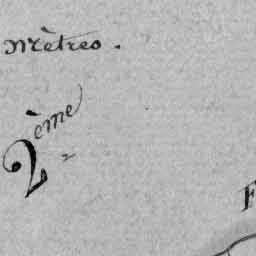 Mètres.
2ème
F